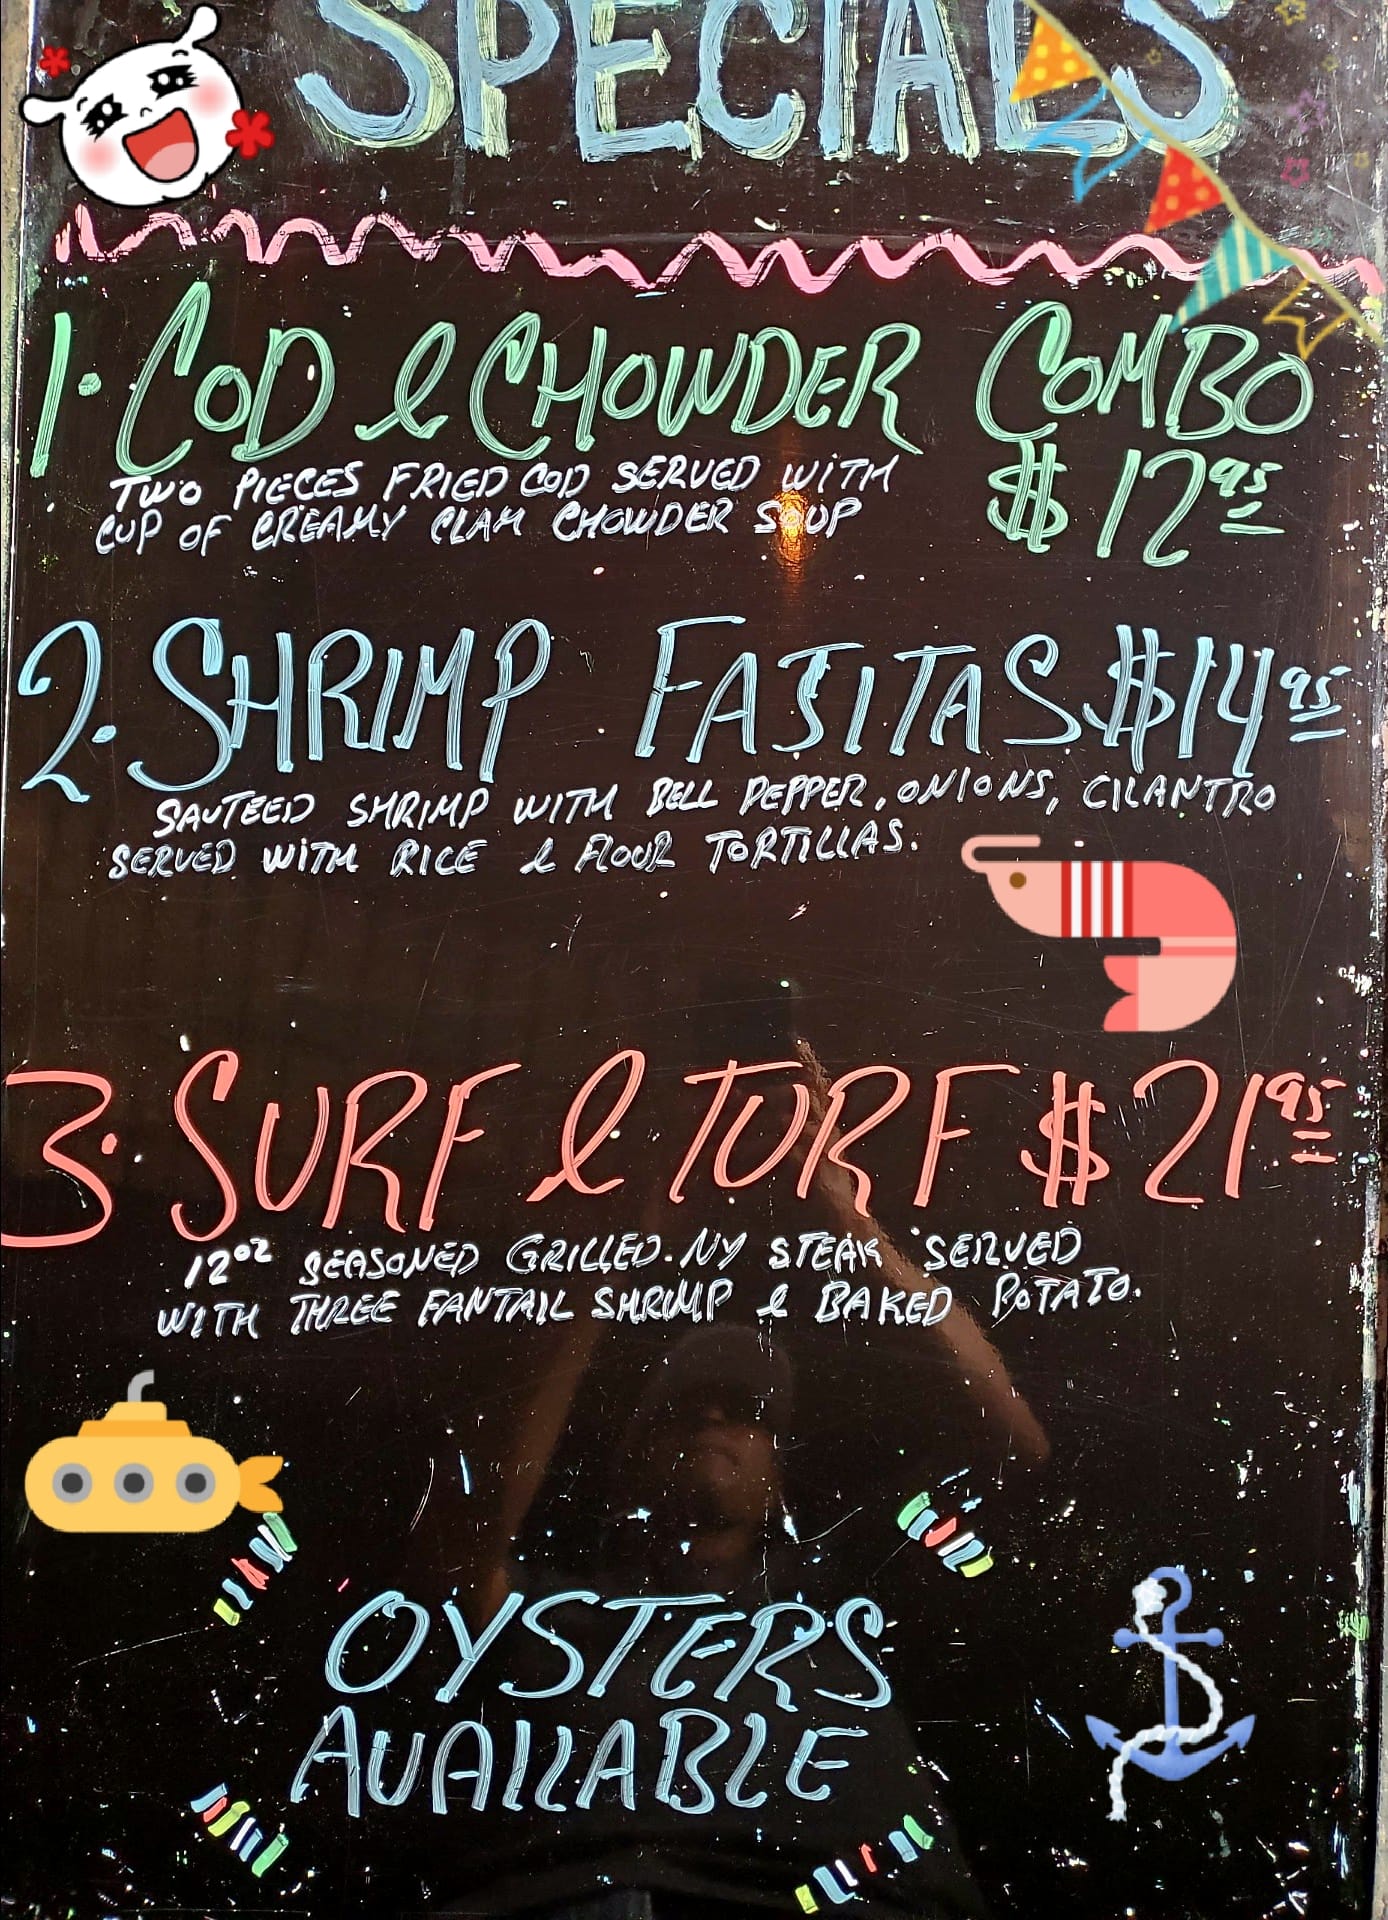 SPECIALS
1. COD & CHOWDER COMBO
$12.95
TWO PIECES FRIED COD SERVED WITH
CUP OF CREAMY CLAM CHOWDER SOUP
2. SHRIMP FAJITAS $14.95
SAUTEED SHRIMP WITH BELL PEPPER, ONIONS, CILANTRO
SERVED WITH RICE & FLOUR TORTILLAS.
3. SURF & TURF $21.95
12oz SEASONED GRILLED. NY STEAK SERVED
WITH THREE FANTAIL SHRIMP & BAKED POTATO.
OYSTERS
AVAILABLE